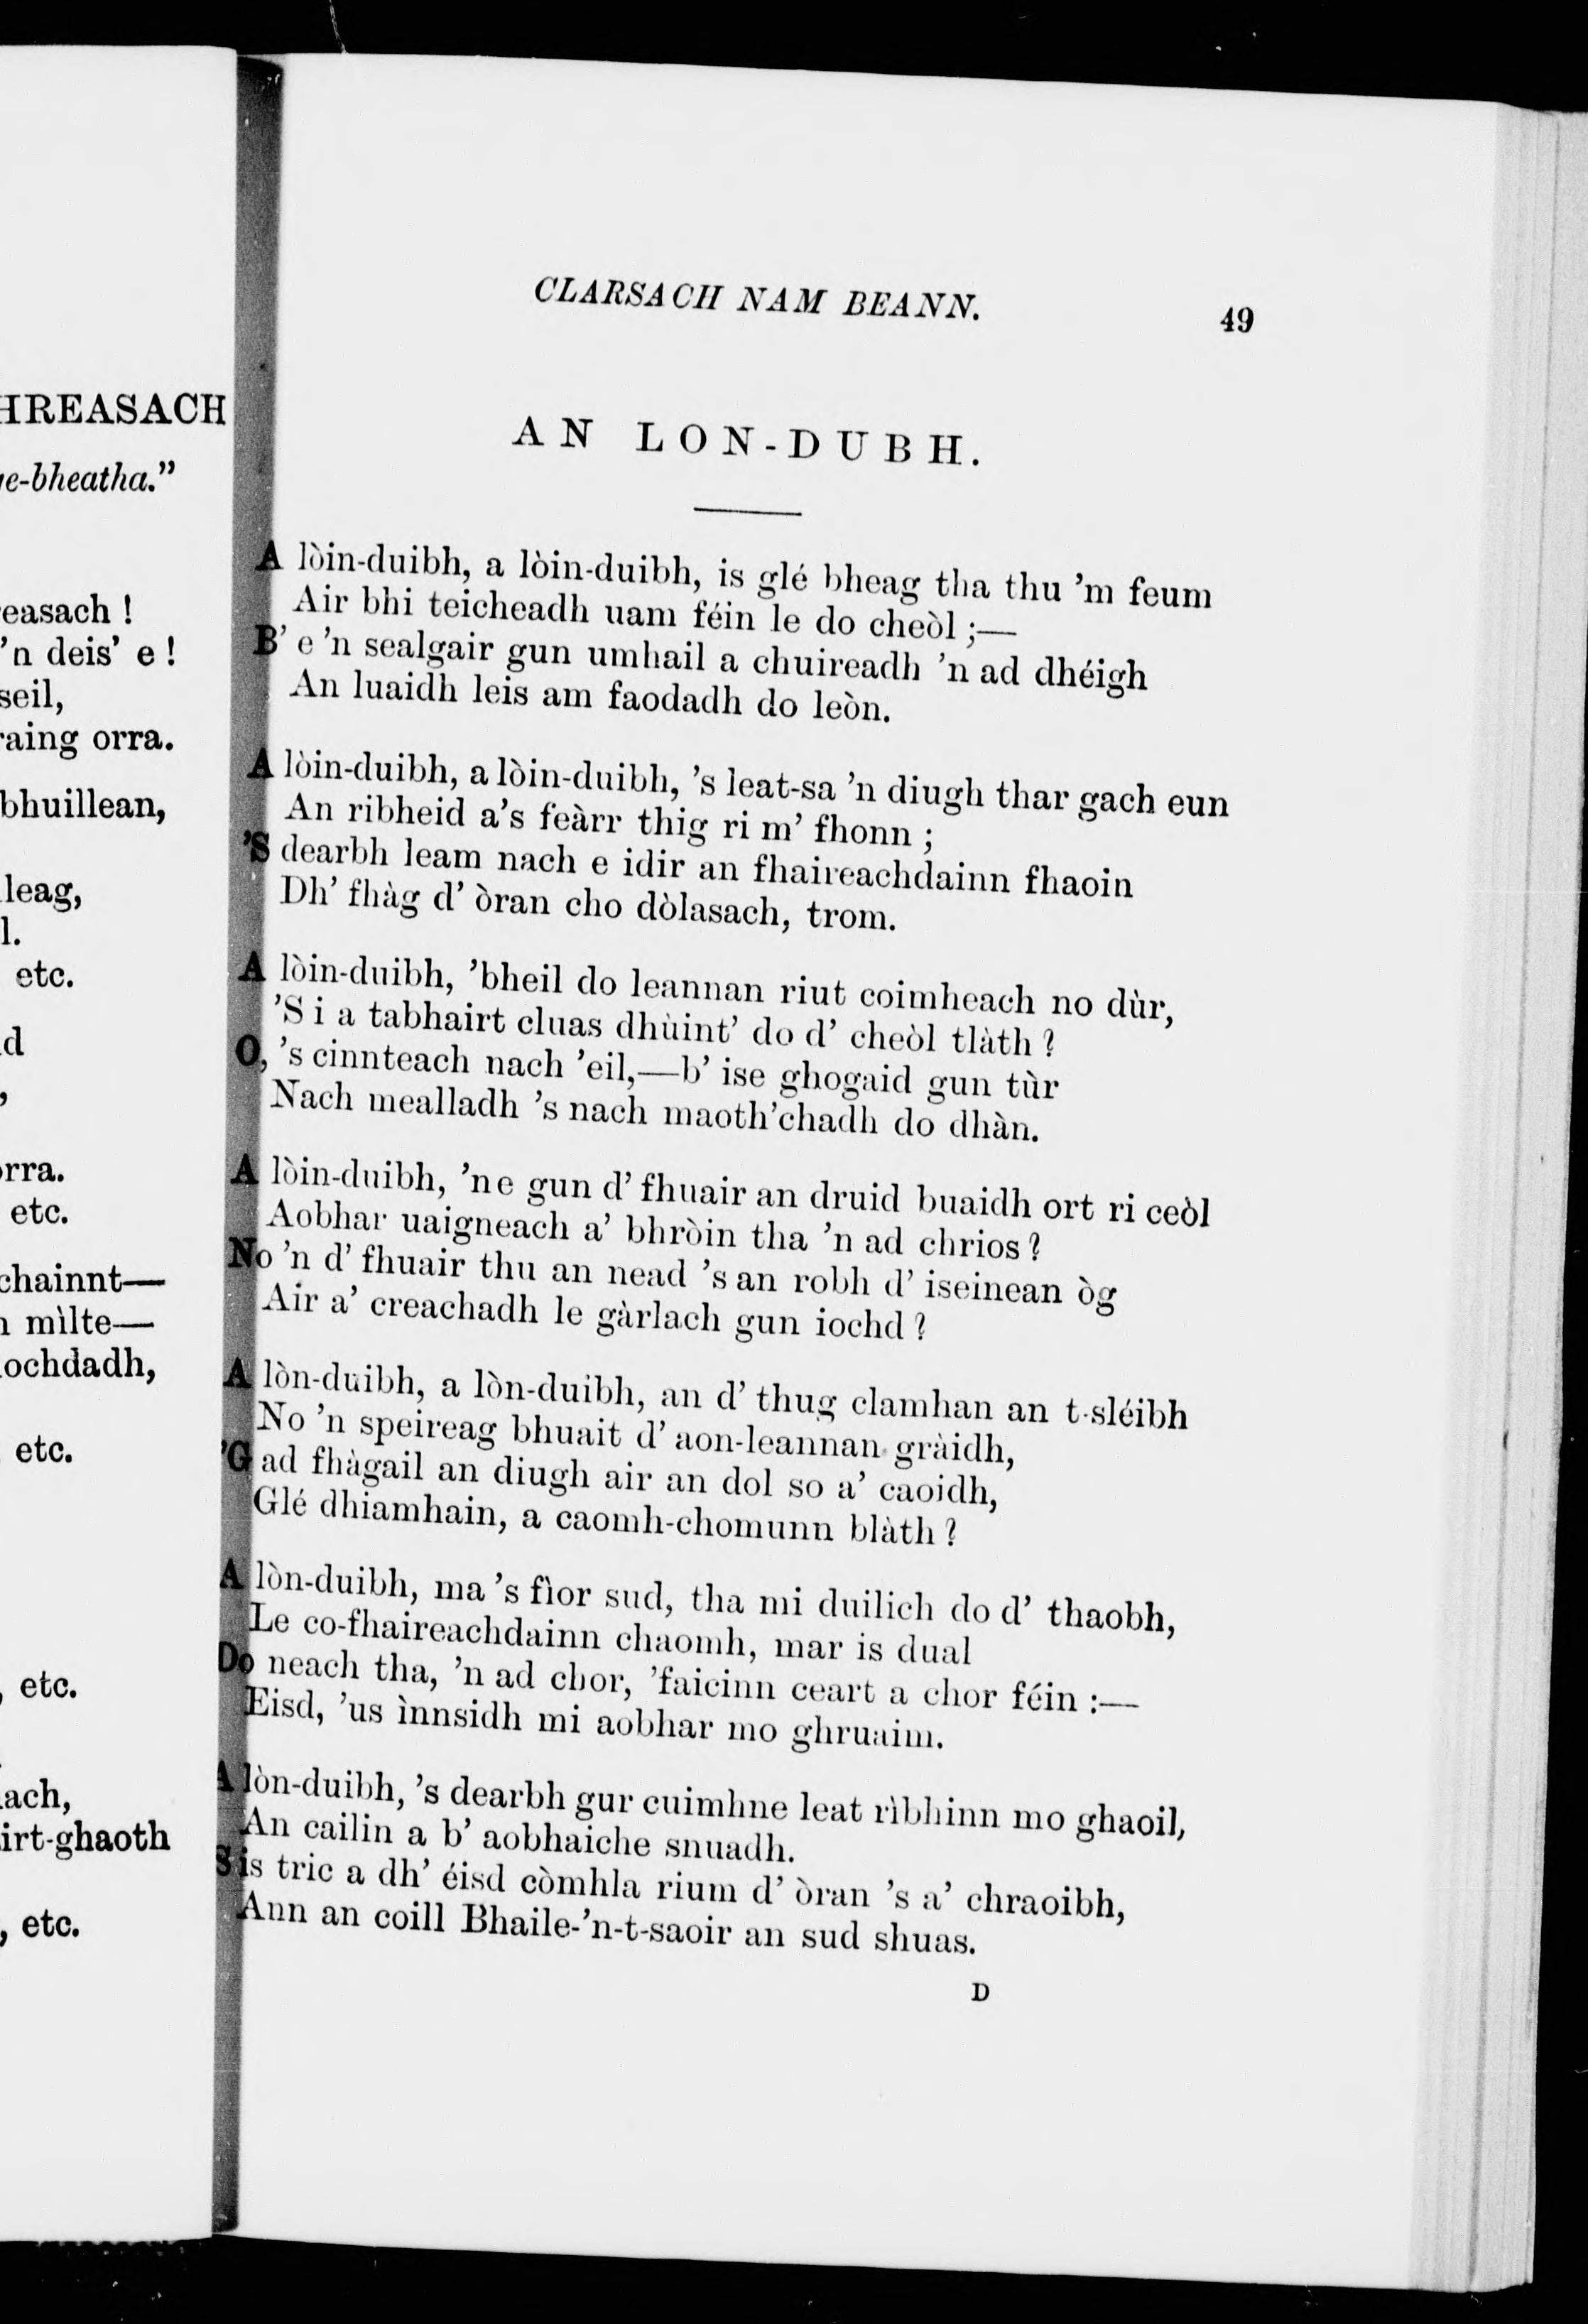 HREASACH
e-bheatha."
easach !
'n deis' e !
seil,
raing orra.
bhuillean,
leag,
l.
etc.
d
,
orra.
etc.
chainnt—
mìlte—
ochdadh,
etc.
, etc.
ach,
irt-ghaoth
, etc.
CLARSACH NAM BEANN.
49
AN LON-DUBH.
A lòin-duibh, a lòin-duibh, is glé bheag tha thu 'm feum
Air bhi teicheadh uam féin le do cheòl ;—
B' e 'n sealgair gun umhail a chuireadh 'n ad dhéigh
An luaidh leis am faodadh do leòn.
A lòin-duibh, a lòin-duibh, 's leat-sa 'n diugh thar gach eun
An ribheid a's feàrr thig ri m' fhonn ;
'S dearbh leam nach e idir an fhaireachdainn fhaoin
Dh' fhàg d' òran cho dòlasach, trom.
A lòin-duibh, 'bheil do leannan riut coimheach no dùr,
'S i a tabhairt cluas dhùint' do d' cheòl tlàth ?
O, 's cinnteach nach 'eil,—b' ise ghogaid gun tùr
Nach mealladh 's nach maoth'chadh do dhàn.
A lòin-duibh, 'ne gun d' fhuair an druid buaidh ort ri ceòl
Aobhar uaigneach a' bhròin tha 'n ad chrios ?
No 'n d' fhuair thu an nead 's an robh d' iseinean òg
Air a' creachadh le gàrlach gun iochd ?
A lòn-duibh, a lòn-duibh, an d' thug clamhan an t-sléibh
No 'n speireag bhuait d' aon-leannan gràidh,
'G ad fhàgail an diugh air an dol so a' caoidh,
Glé dhiamhain, a caomh-chomunn blàth ?
A lòn-duibh, ma 's fìor sud, tha mi duilich do d' thaobh,
Le co-fhaireachdainn chaomh, mar is dual
Do neach tha, 'n ad chor, 'faicinn ceart a chor féin :—
Eisd, 'us ìnnsidh mi aobhar mo ghruaim.
A lòn-duibh, 's dearbh gur cuimhne leat rìbhinn mo ghaoil,
An cailin a b' aobhaiche snuadh.
S is tric a dh' éisd còmhla rium d' òran 's a' chraoibh,
Ann an coill Bhaile-'n-t-saoir an sud shuas.
D